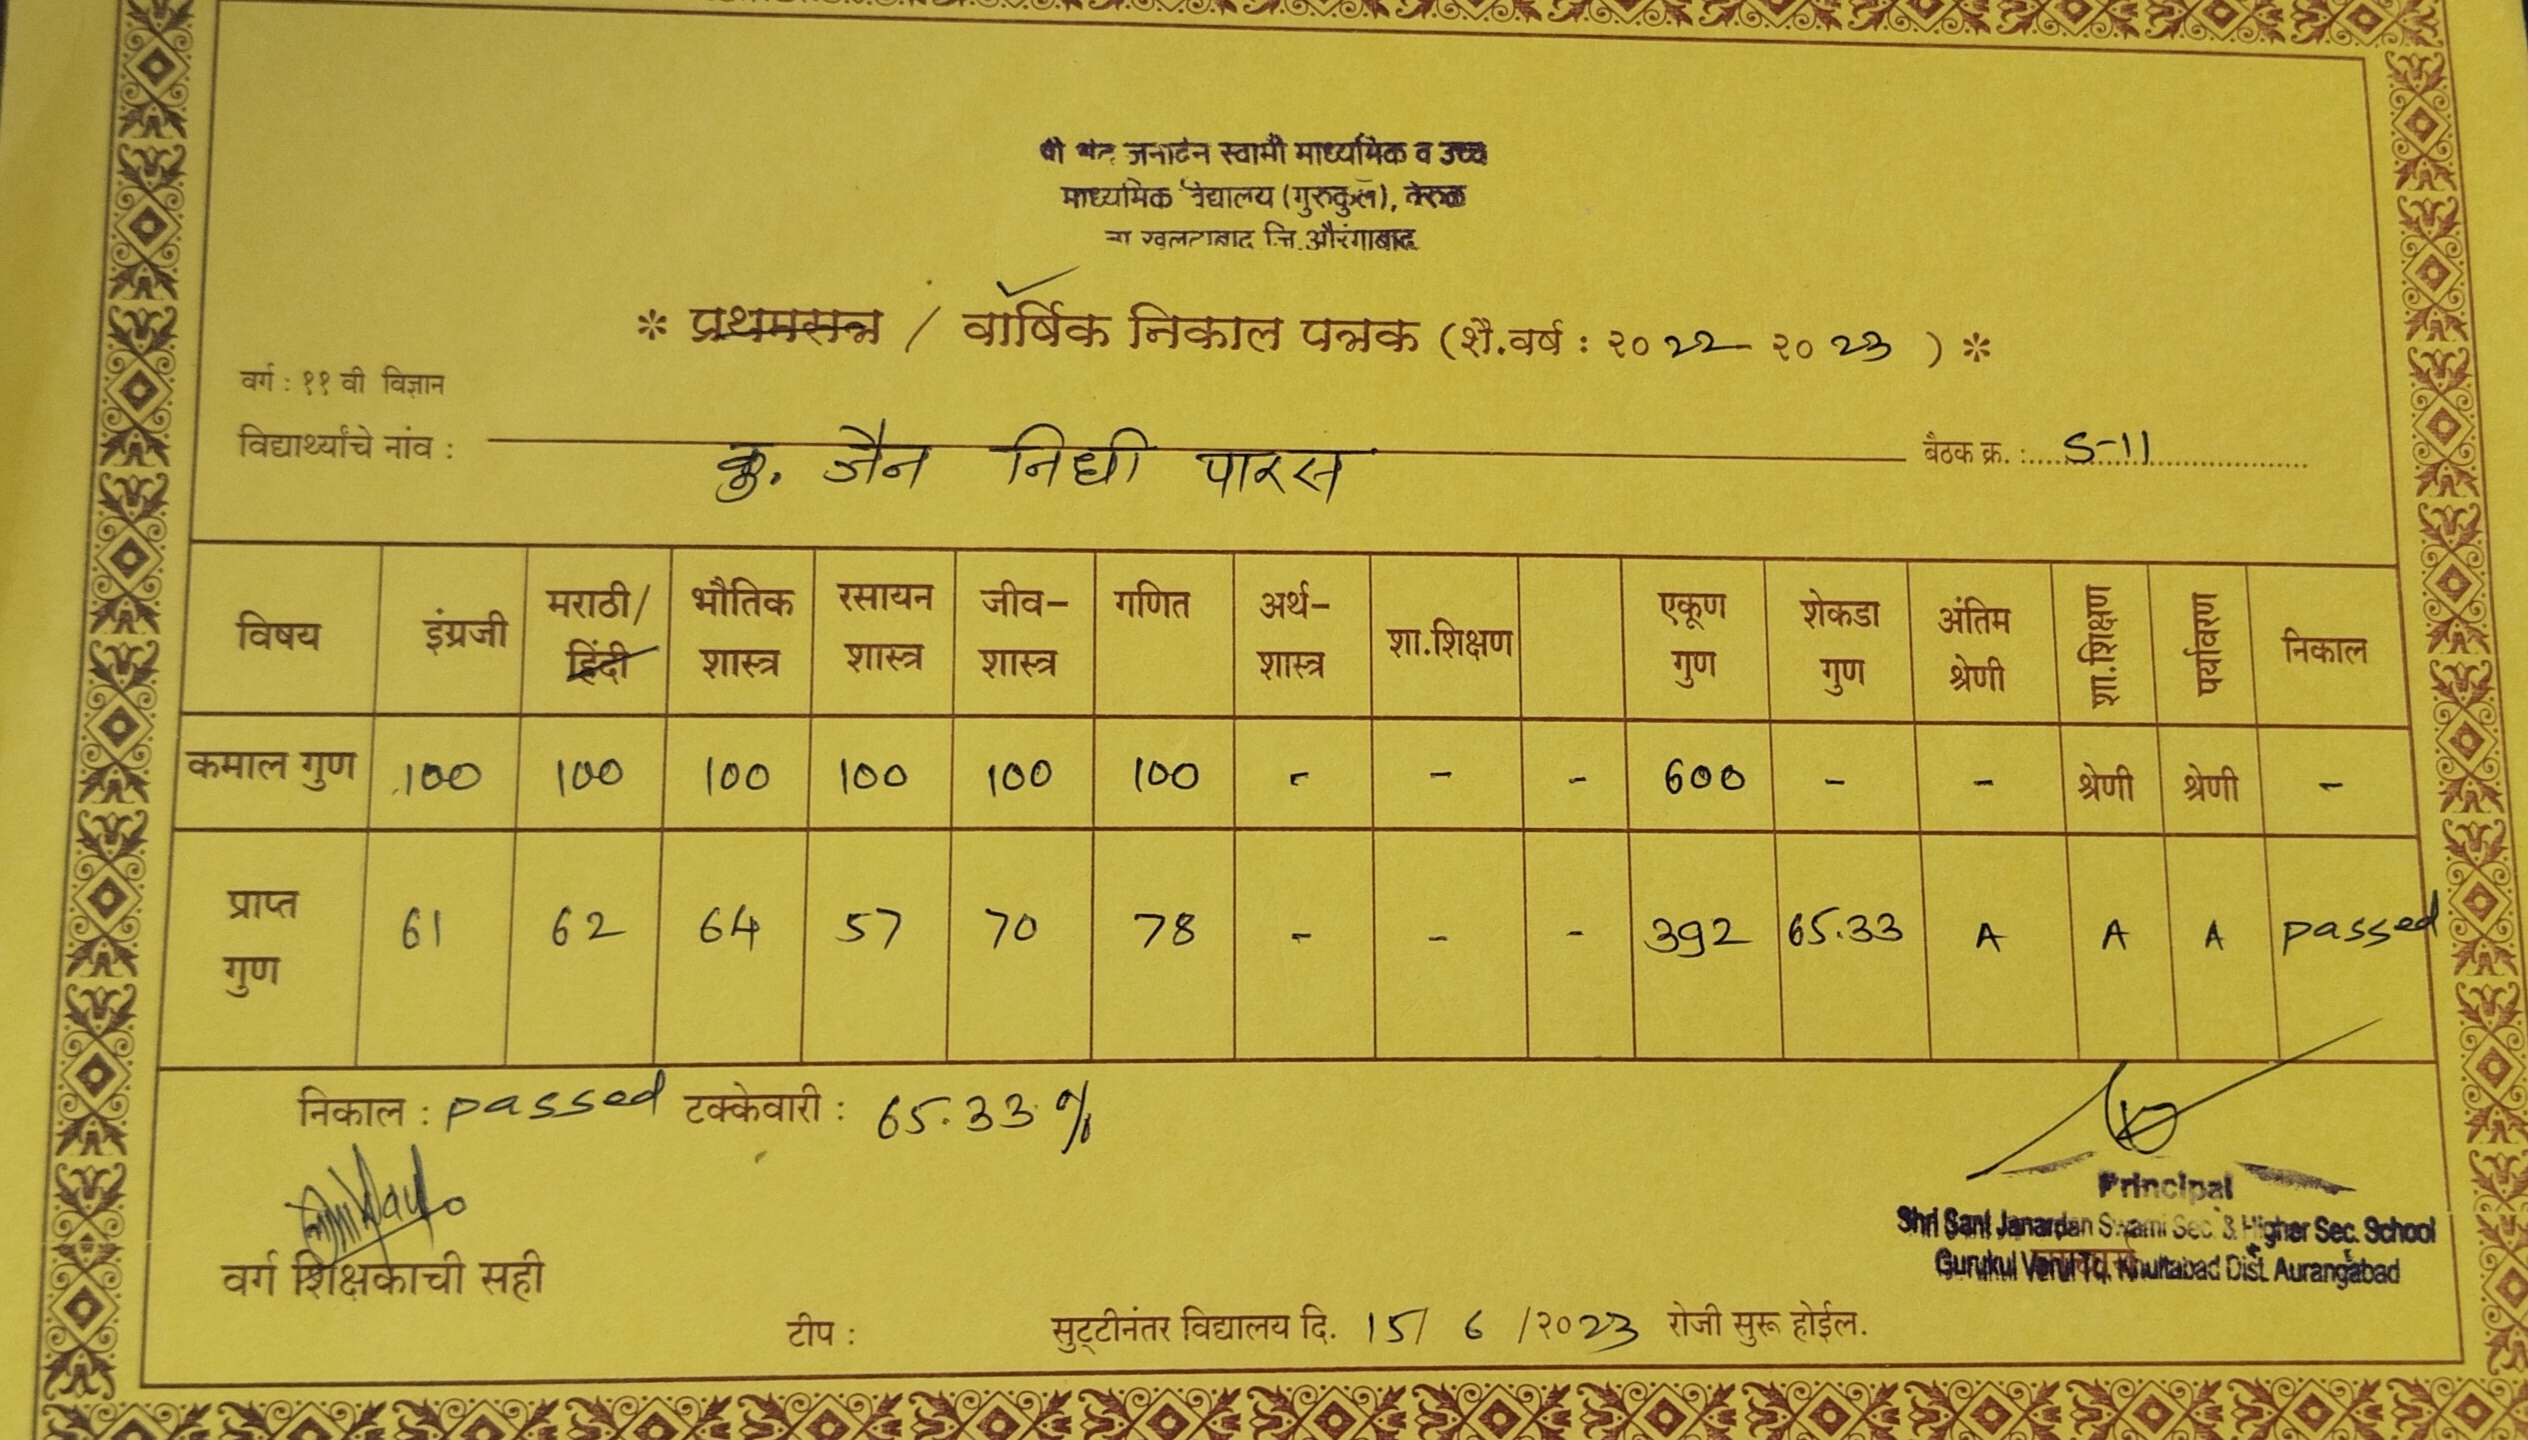 जनार्दन स्वामी माध्यमिक व उच्च
माध्यमिक विद्यालय (गुरुकुल), वेरुळ
ता खुलताबाद जि. औरंगाबाद
* प्रथमसत्र / वार्षिक निकाल पत्रक (शै.वर्ष : २०22 - २०23 ) *
वर्ग : ११ वी विज्ञान
विद्यार्थ्यांचे नांव : कु. जैन निधी पारस बैठक क्र. : S-11
विषय इंग्रजी मराठी/हिंदी भौतिक शास्त्र रसायन शास्त्र जीव-शास्त्र गणित अर्थ-शास्त्र शा.शिक्षण एकूण गुण शेकडा गुण अंतिम श्रेणी शा.शिक्षण पर्यावरण निकाल
कमाल गुण 100 100 100 100 100 100 - - - 600 - - श्रेणी श्रेणी -
प्राप्त गुण 61 62 64 57 70 78 - - - 392 65.33 A A A passed
निकाल : passed टक्केवारी : 65.33 %
Principal
Shri Sant Janardan Swami Sec. & Higher Sec. School
Gurukul Verul Tq. Khultabad Dist. Aurangabad
वर्ग शिक्षकाची सही
टीप : सुट्टीनंतर विद्यालय दि. 15/ 6 /२०23 रोजी सुरू होईल.